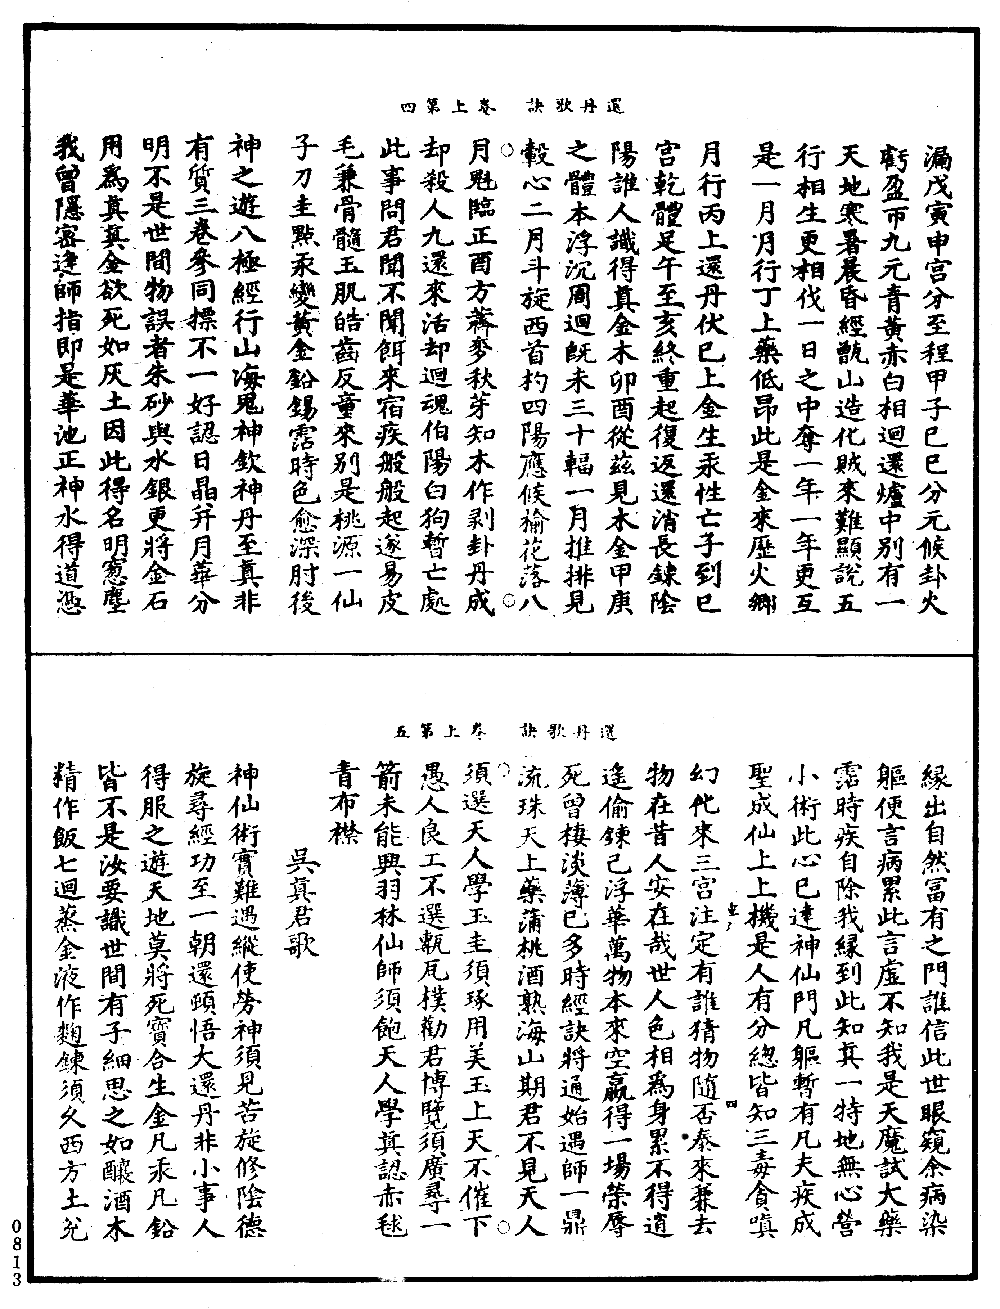 還丹歌訣　卷上第四
漏戊寅申宫分至程甲子巳巳分元候卦火
虧盈帀九元青黄赤白相迴還爐中别有一
天地寒暑晨昏經甑山造化賊來難顯説五
行相生更相伐一日之中奪一年一年更互
是一月月行丁上藥低昂此是金來歷火鄉
月行丙上還丹伏巳上金生汞性亡子到巳
宫乾體足午至亥終重起復返還消長鍊陰
陽誰人識得真金木卯酉從兹見木金甲庚
之體本浮沉周迴旣未三十輻一月推排見
轂心二月斗旋西首杓四陽應候榆花落八
月魁臨正酉方蕎麥秋芽知木作剥卦丹成
却殺人九還來活却迴魂伯陽白狗暫亡處
此事問君聞不聞餌來宿疾般般起遂易皮
毛兼骨髓玉肌皓齒反童來别是桃源一仙
子刀圭點汞變黄金鉛錫霑時色愈深肘後
神之遊八極經行山海鬼神欽神丹至真非
有質三卷參同摽不一好認日晶并月華分
明不是世間物誤者朱砂與水銀更將金石
用爲真真金欲死如灰土因此得名明窻塵
我曾隱密逢師指即是華池正神水得道憑
還丹歌訣　卷上第五
緣出自然冨有之門誰信此世眼窺余病染
軀便言病累此言虚不知我是天魔試大藥
霑時疾自除我緣到此知真一特地無心營
小術此心巳達神仙門凡軀暫有凡夫疾成
聖成仙上上機是人有分緫皆知三毒貪嗔
幻化來三宫注定有誰猜物隨否泰來兼去
物在昔人安在哉世人色相爲身累不得逍
遥偷鍊己浮華萬物本來空贏得一場榮辱
死曾棲淡薄巳多時經訣將通始遇師一鼎
流珠天上藥蒲桃酒熟海山期君不見天人
須選天人學玉圭須琢用美玉上天不催下
愚人良工不選甎瓦樸勸君博覽須廣尋一
箭未能興羽林仙師須飽天人學真認赤毬
青布襟
吳真君歌
神仙術實難遇縱使勞神須見苦旋修陰德
旋尋經功至一朝還頓悟大還丹非小事人
得服之遊天地莫將死寶合生金凡汞凡鉛
皆不是汝要識世間有子細思之如釀酒木
精作飯七迴蒸金液作麴鍊須久西方土兌
0813